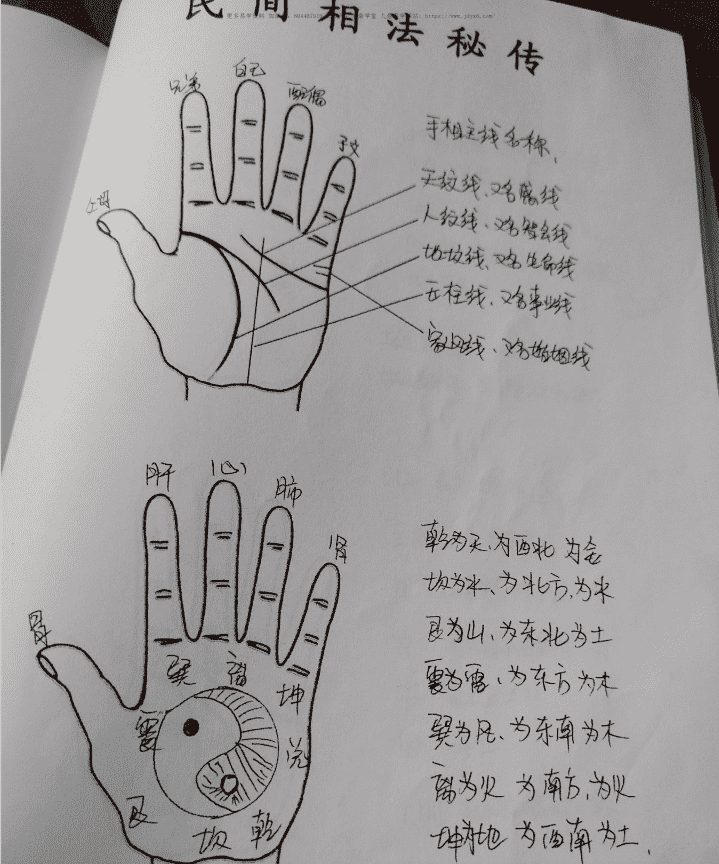 民间相法秘传
https://www.jdyx6.com/
兄弟
自己
配偶
子女
父母
手相主线名称、
天纹线、又名 线
人纹线、又名智慧线
地纹线、又名生命线
玉柱线、又名事业线
家风线、又名婚姻线
肝
心
肺
肾
胃
巽
离
坤
震
兑
艮
坎
乾
乾为天、为西北 为金
坎为水、为北方、为水
艮为山、为东北为土
震为雷、为东方为木
巽为风、为东南为木
离为火 为南方、为火
坤为地 为西南为土、